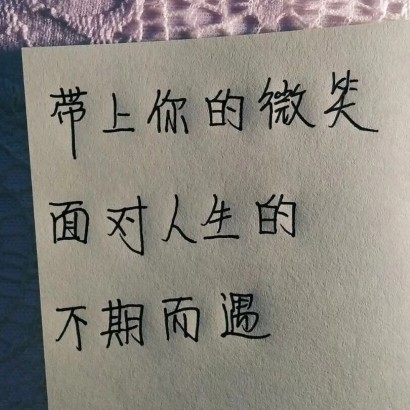 带上你的微笑
面对人生的
不期而遇